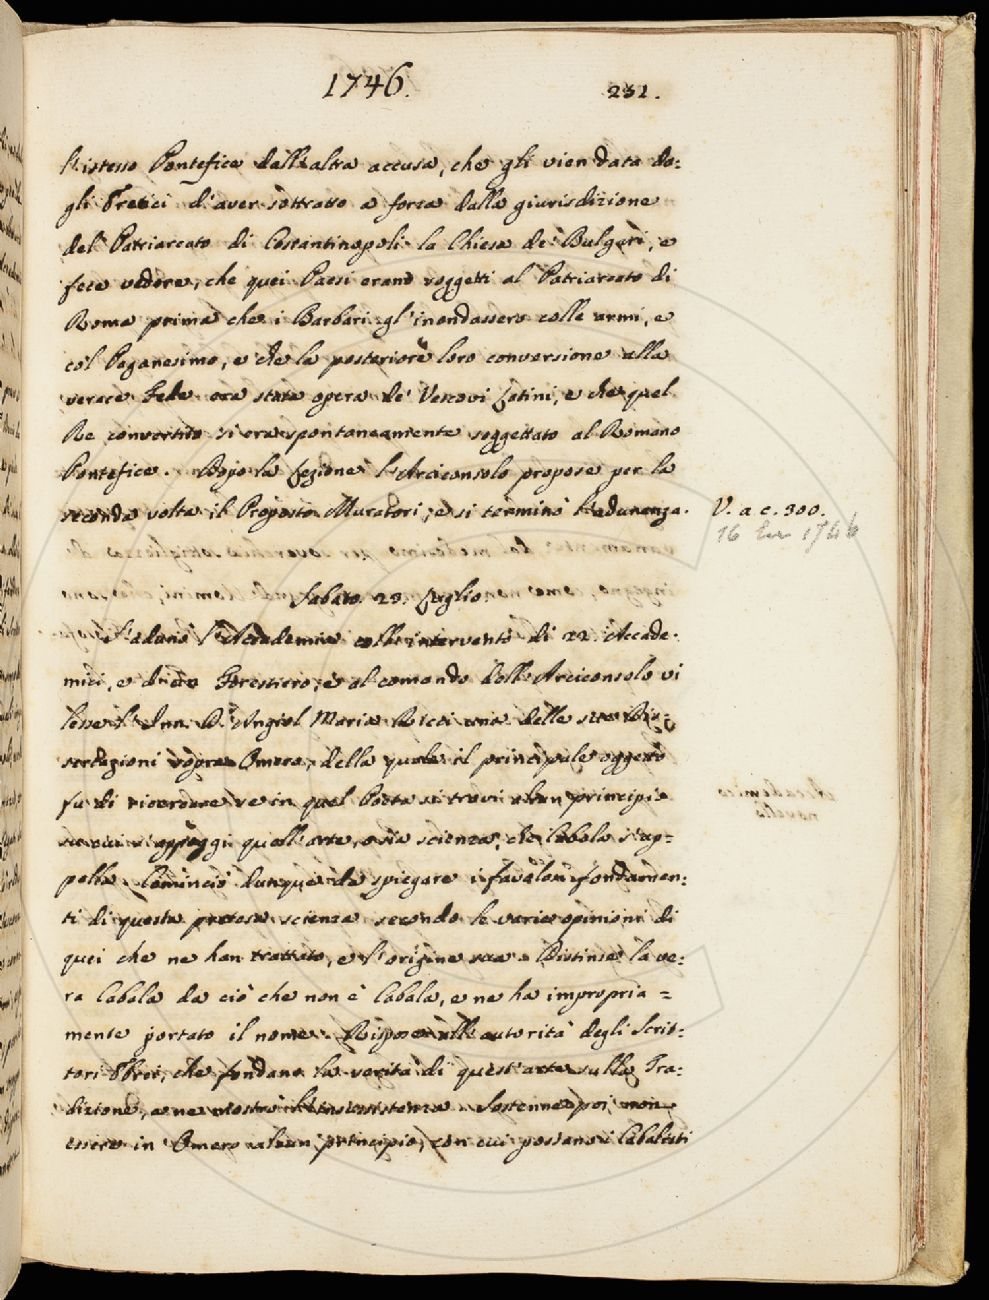 1746.
231.
l'istesso Pontefice dall'altra accusa, che gli vien data da-
gli Eretici d'aver sottratto a forza dalla giurisdizione
del Patriarcato di Costantinopoli la Chiesa de' Bulgari, e
fece vedere, che quei Paesi erano soggetti al Patriarcato di
Roma prima che i Barbari gl'inondassero colle armi, e
col Paganesimo, e che la posteriore loro conversione alla
verace Fede era stata opera de' Vescovi Latini, e che quel
Re convertito si era spontaneamente soggettato al Romano
Pontefice. Dopo la Lezione l'Arciconsolo propose per la
seconda volta il Proposto Muratori, e si terminò l'adunanza.
V. a c. 300.
16 1746
Sabato 23. Luglio.
S'adunò l'Accademia coll'intervento di 22. Accade-
mici, e Forestiero, e al comando dell'Arciconsolo vi
lesse l'Inn. D. Angiol Maria Ricci una delle sue Dis-
sertazioni sopra Omero, della quale il principale oggetto
fu di ricercare se in quel Poeta si trovi alcun principio
su cui s'appoggi quell'arte, o sia scienza, che Cabala s'ap-
pella. Cominciò dunque da spiegare i favolosi fondamen-
ti di questa pretesa scienza secondo le varie opinioni di
quei che ne han trattato, e l'origine sua. Distinse la ve-
ra Cabala da ciò che non è Cabala, e ne ha impropria-
mente portato il nome. Rispose all'autorità degli Scrit-
tori Ebrei, che fondano la verità di quest'arte sulla Tra-
dizione, e ne mostrò l'insussistenza. Sostenne poi non
essere in Omero alcun principio, con cui possano i Cabalisti